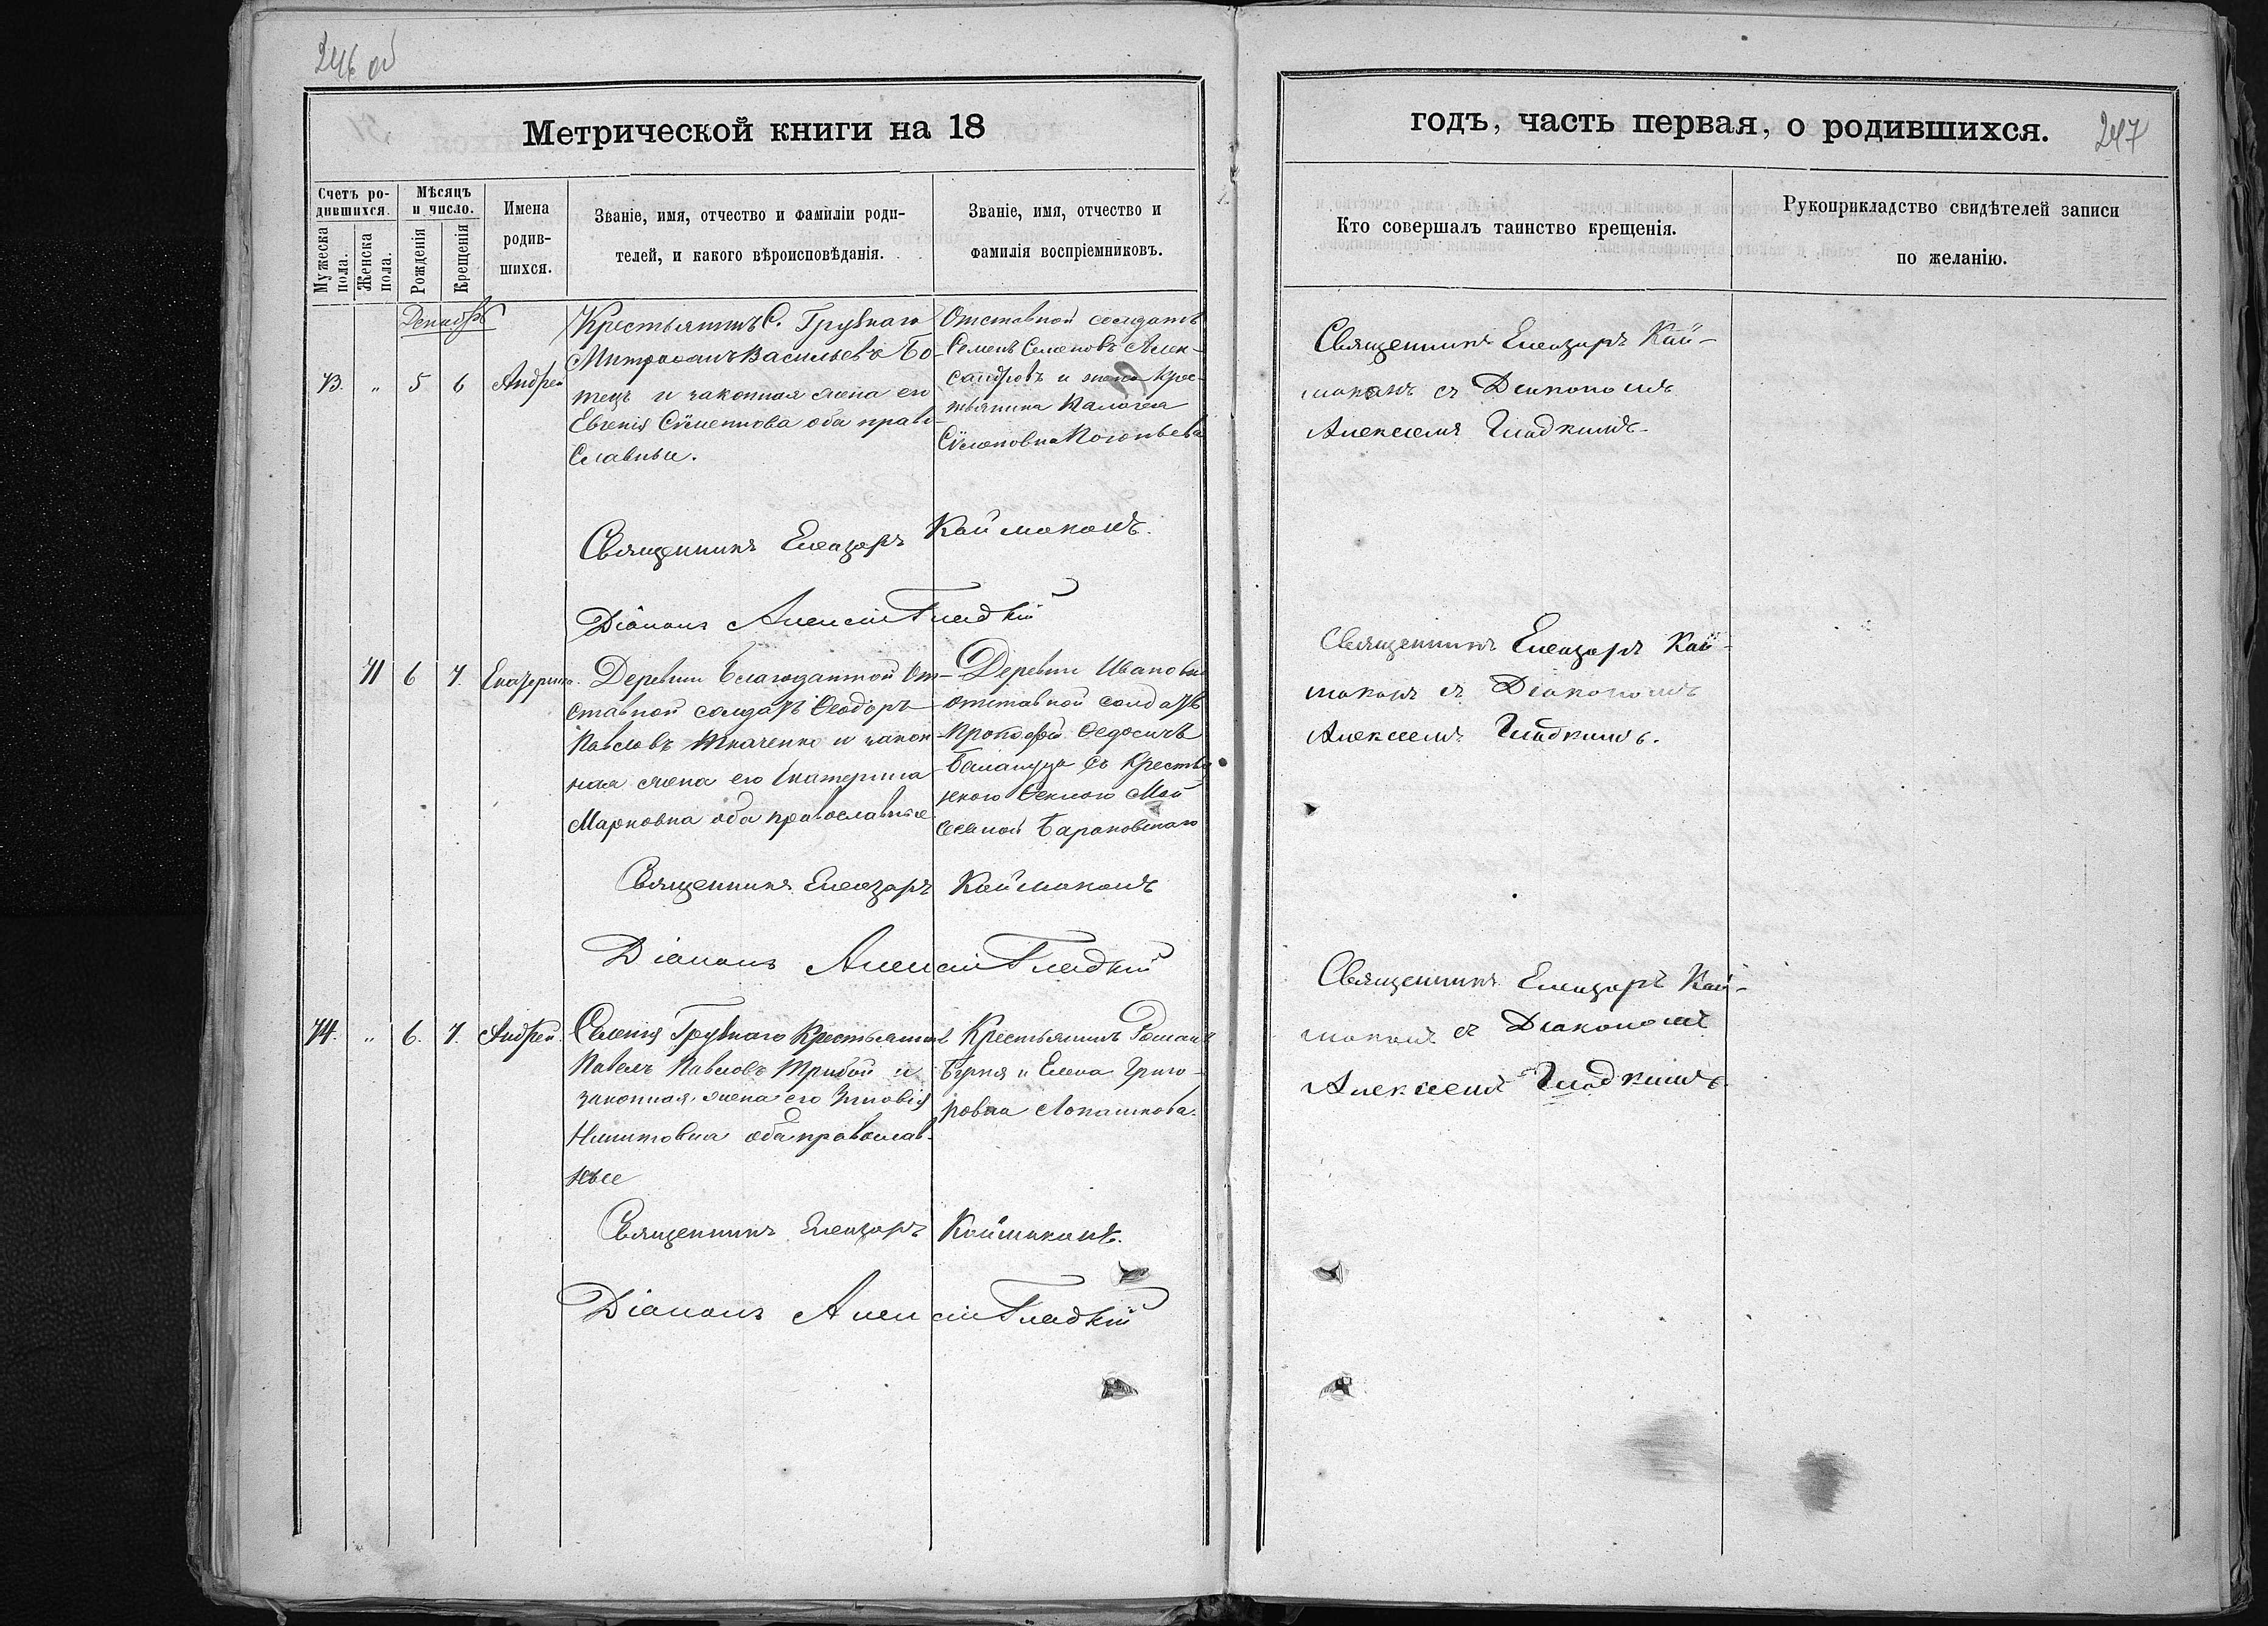 246 об
Метрической книги на 18
Счетъ ро-
дившихся.
Мужеска пола.
Женска пола.
Мѣсяцъ
и число.
Рожденія
Крещенія
Имена
родив-
шихся.
Званіе, имя, отчество и фамиліи роди-
телей, и какого вѣроисповѣданія.
Званіе, имя, отчество и
фамилія воспріемниковъ.
Декабрь
73. " 5 6 Андрей
Крестьянинъ С. Трубнаго
Митрофанъ Васильевъ Бо-
тецъ и законная жена его
Евгенія Сѵмеонова оба право
славныи.
Отставной солдатъ
Семенъ Семеновъ Алек-
сандровъ и жена крес-
тьянина
Сѵмеоновна
Священникъ Елеазаръ Каймаканъ.
Діаконъ Алексій Гладкій
71 6 7. Екатерина.
Деревни Благодатной От-
ставной солдатъ Ѳеодоръ
Павловъ Ткаченко и закон
ная жена его Екатерина
Марковна оба православные
Деревни Ивановки
отставной солдатъ
Прокофій Ѳедосіевъ
Балануца съ крестья
Ѳеклою Мой
сеевной Барановскаго
Священникъ Елеазаръ Каймаканъ
Діаконъ Алексій Гладкій
74. " 6. 7. Андрей.
Селенія Трубнаго Крестьянинъ
Павелъ Павловъ Трибой и
законная жена его Зиновія
Никитовна оба православ-
ные
Крестьянинъ Романъ
Бурня и Елена Григо-
ровна Лопашкова.
Священникъ Елеазаръ Каймаканъ.
Діаконъ Алексій Гладкій
годъ, часть первая, о родившихся.
247
Кто совершалъ таинство крещенія.
Рукоприкладство свидѣтелей записи
по желанію.
Священникъ Елеазаръ Кай-
маканъ съ Діакономъ
Алексіемъ Гладкимъ.
Священникъ Елеазаръ Кай-
маканъ съ Діакономъ
Алексіемъ Гладкимъ.
Священникъ Елеазаръ Кай-
маканъ съ Діакономъ
Алексіемъ Гладкимъ.